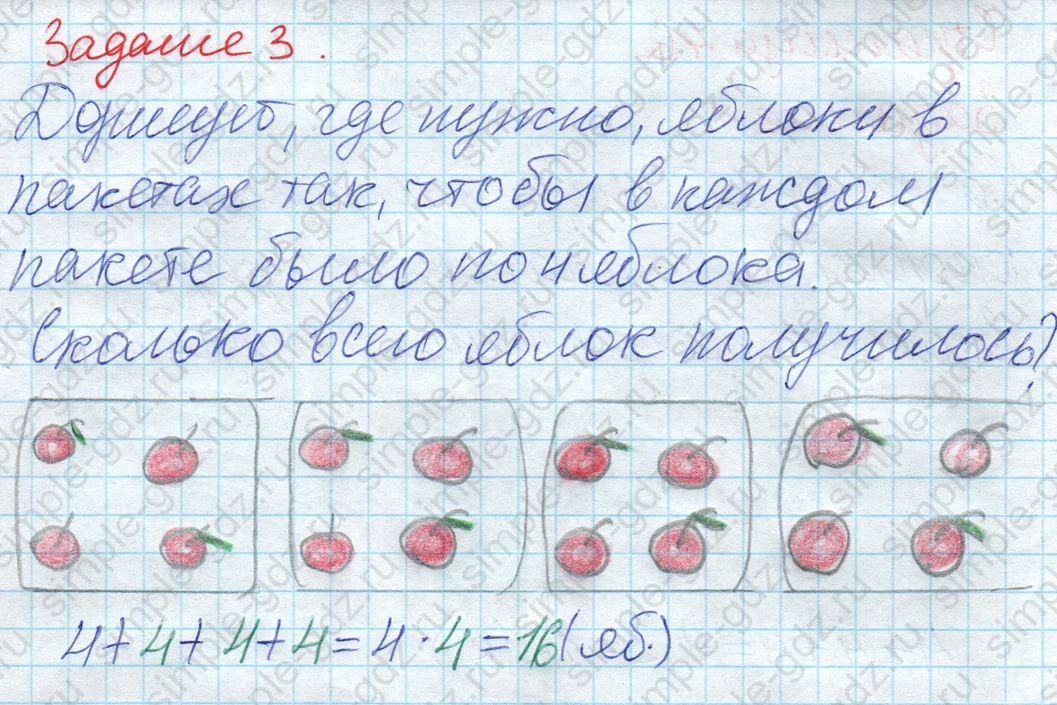 Задание 3.
Дорисуй, где нужно, яблоки в
пакетах так, чтобы в каждом
пакете было по 4 яблока.
Сколько всего яблок получилось?
4+4+4+4=4·4=16(яб.)
simple-gdz.ru